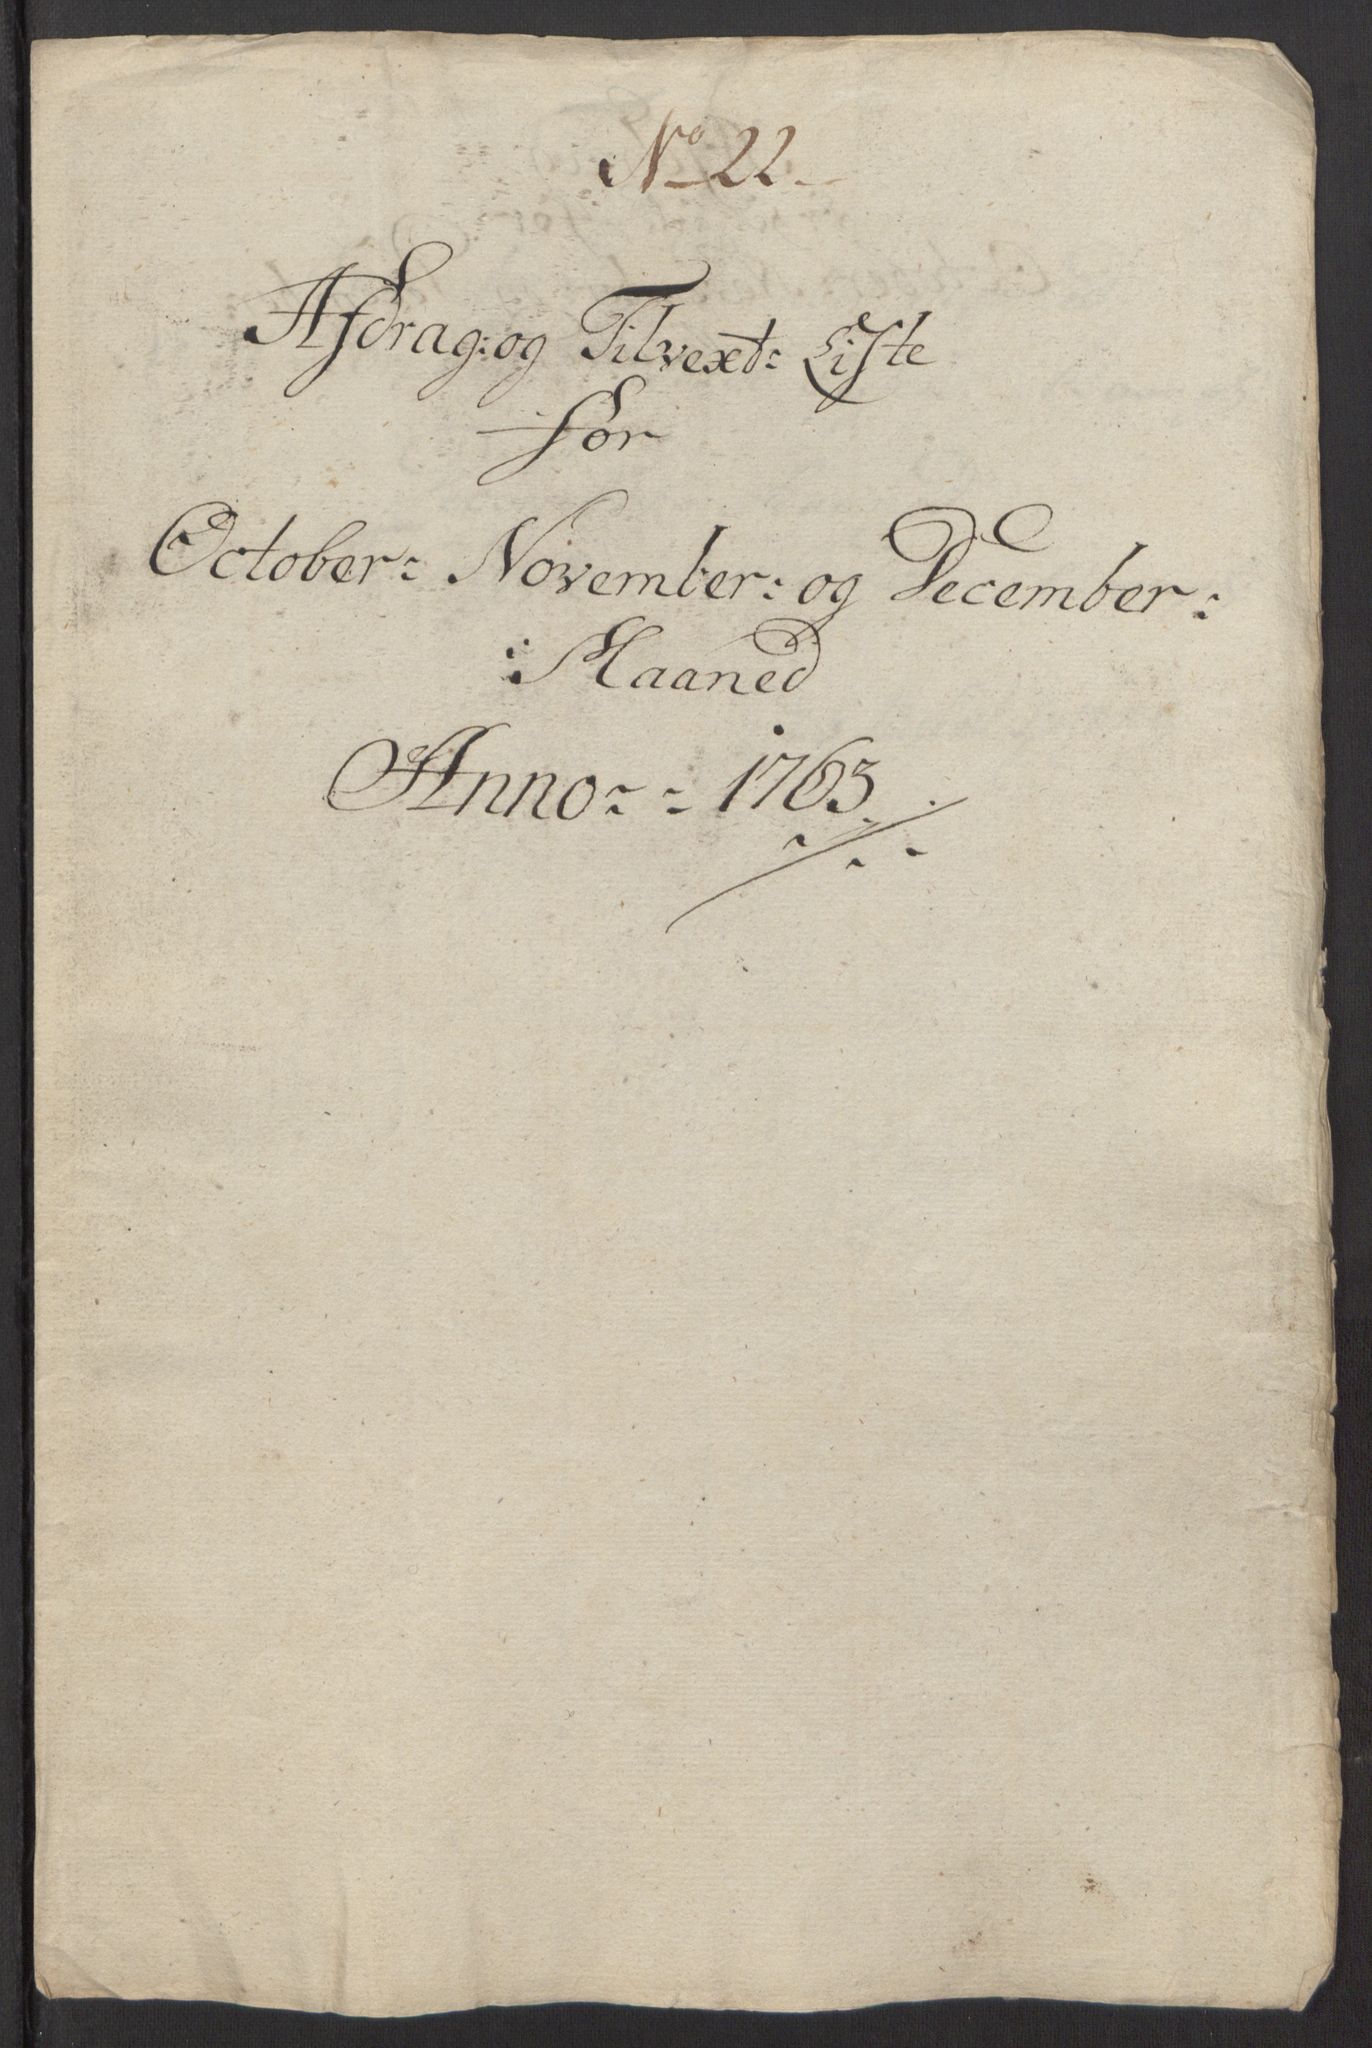 No 22
Afdrag: og Tilvext: Liste
for
October: November: og December:
: Maaned
Anno: : 1763